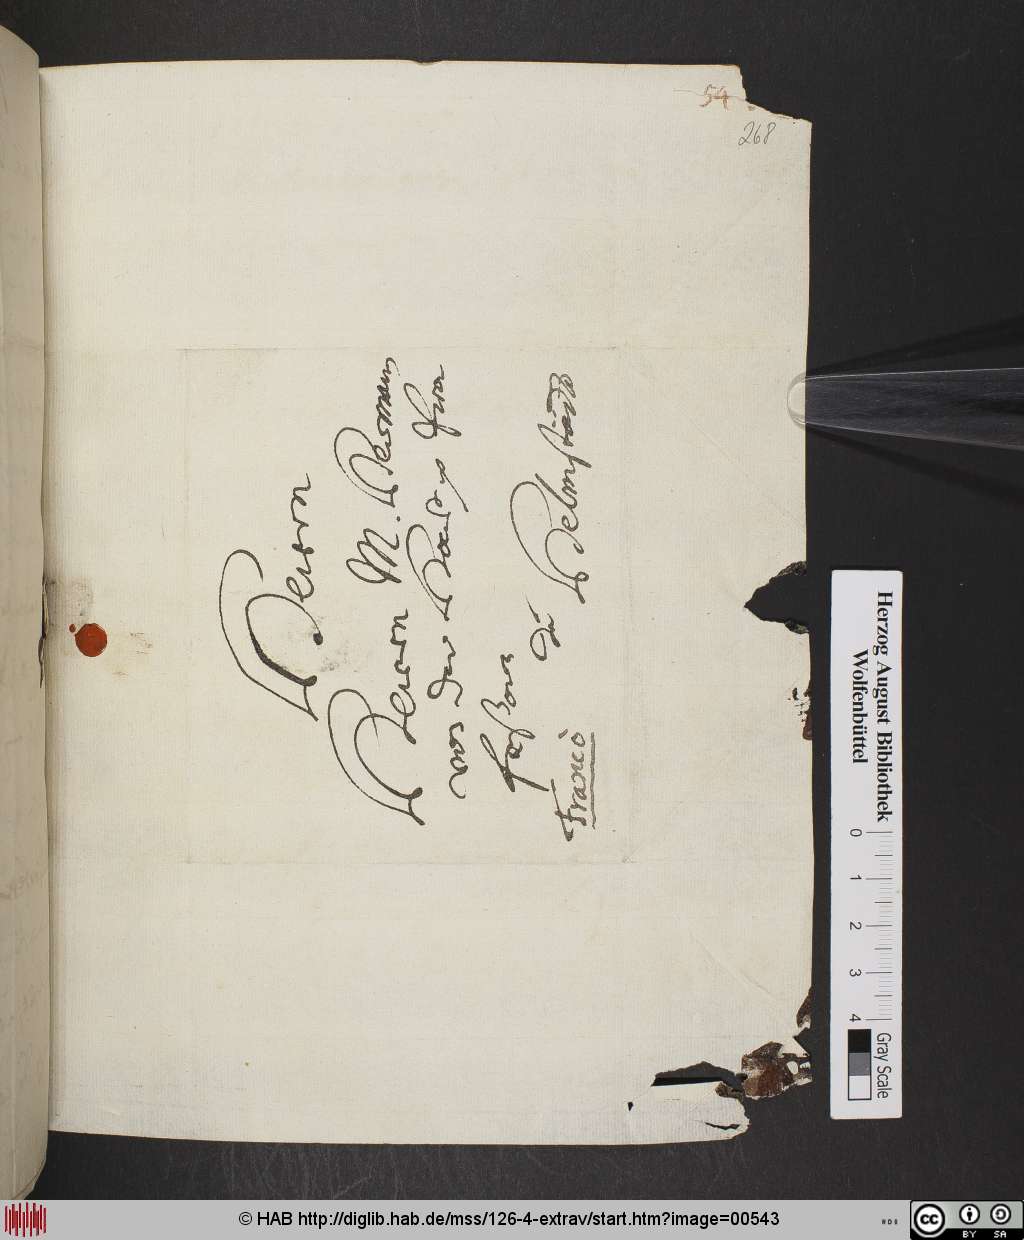 54
268
Herrn
Herrn M. Hermann
von der Hardt
zu Helmstädt
Franco
Herzog August Bibliothek
Wolfenbüttel
0 1 2 3 4
Gray Scale
© HAB http://diglib.hab.de/mss/126-4-extrav/start.htm?image=00543
cc BY SA